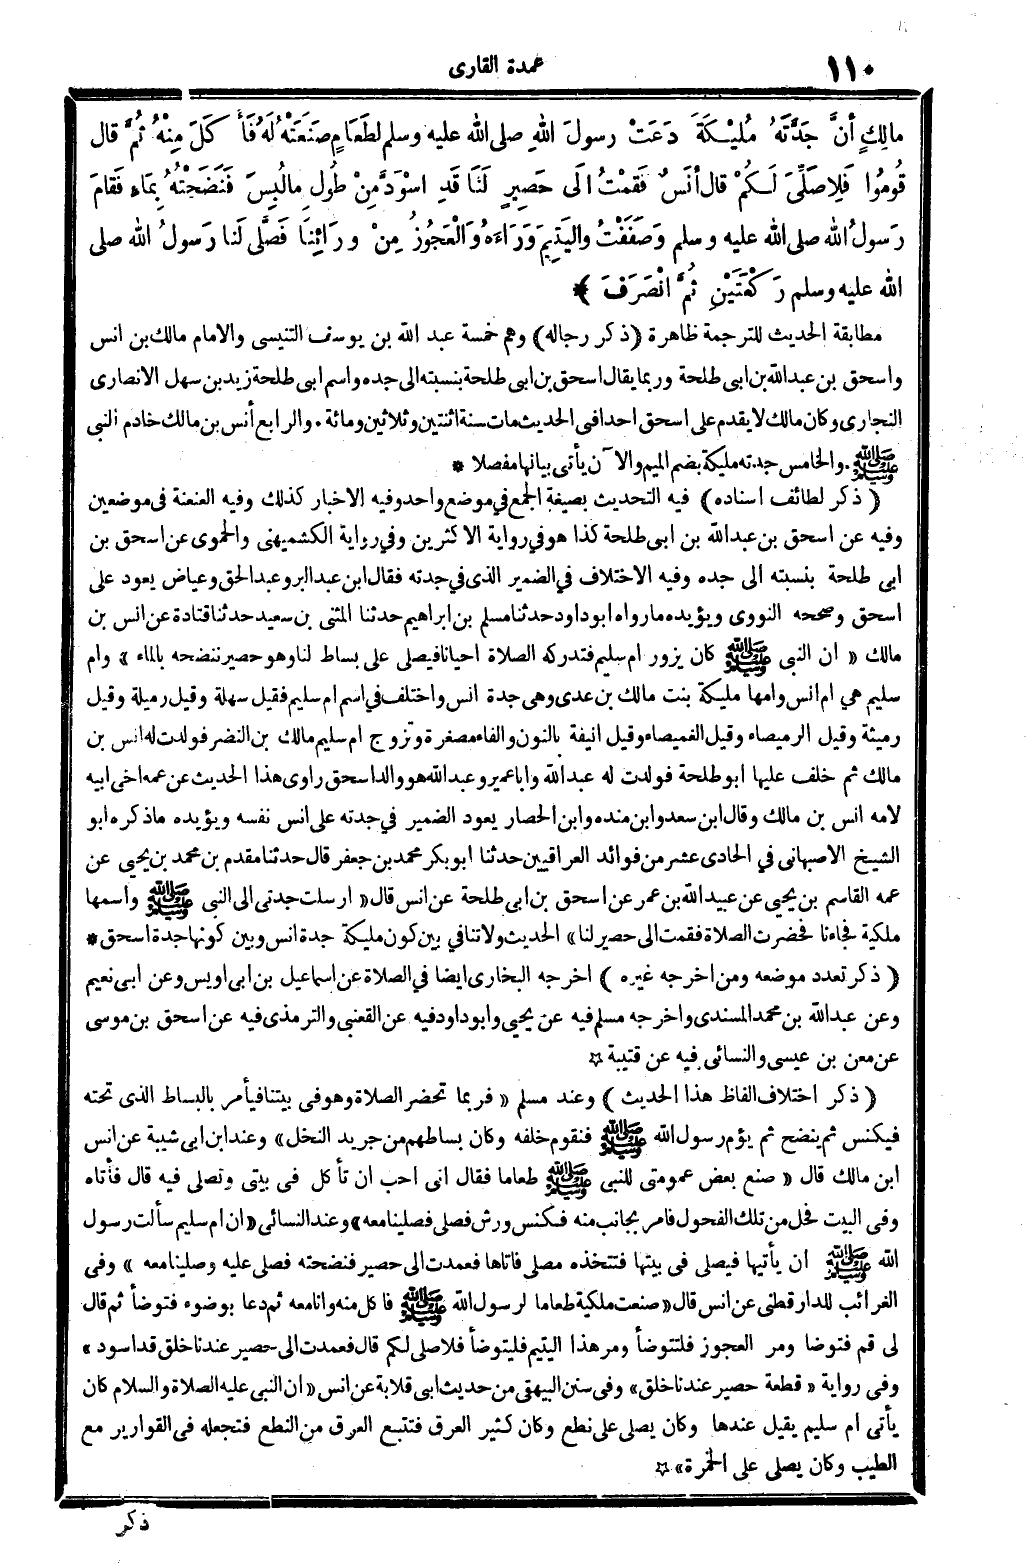 ١١٠
عمدة القارى
مالِكٍ أنَّ جَدَّتَهُ مُلَيْكَةَ دَعَتْ رسولَ اللهِ صلى الله عليه وسلم لطَعَامٍ صَنَعَتْهُ لَهُ فَأَكَلَ مِنْهُ ثُمَّ قال
قُومُوا فَلِأُصَلِّىَ لَكُمْ قال أنَسٌ فَقمْتُ الَى حَصِيرٍ لَنَا قَدِ اسْوَدَّ مِنْ طُولِ مالُبِسَ فَنَضَحْتُهُ بِمَاءٍ فَقامَ
رَسولُ الله صلى الله عليه وسلم وَصَفَفْتُ واليَتِيمَ وَرَاءَهُ وَالْعَجُوزُ مِنْ ورَائِنَا فَصَلَّى لَنا رَسولُ الله صلى
الله عليه وسلم رَكْعَتَيْنِ ثُمَّ انْصَرَفَ ﴾ *
مطابقة الحديث للترجمة ظاهرة (ذكر رجاله) وهم خمسة عبد الله بن يوسف التنيسى والامام مالك بن انس
واسحق بن عبدالله بن ابى طلحة وربما يقال اسحق بن ابى طلحة بنسبته الى جده واسم ابى طلحة زيد بن سهل الانصارى
النجارى وكان مالك لا يقدم على اسحق احدا فى الحديث مات سنة اثنتين وثلاثين ومائة. والرابع أنس بن مالك خادم النبى
ﷺ. والخامس جدته مليكة بضم الميم والآن يأتى بيانها مفصلا *
(ذكر لطائف اسناده) فيه التحديث بصيغة الجمع في موضع واحد وفيه الاخبار كذلك وفيه العنعنة فى موضعين
وفيه عن اسحق بن عبدالله بن ابى طلحة كذا هو في رواية الاكثرين وفي رواية الكشميهنى والحموى عن اسحق بن
ابى طلحة بنسبته الى جده وفيه الاختلاف في الضمير الذى في جدته فقال ابن عبدالبر وعبدالحق وعياض يعود على
اسحق وصححه النووى ويؤيده مارواه ابوداود حدثنا مسلم بن ابراهيم حدثنا المثنى بن سعيد حدثنا قتادة عن انس بن
مالك « ان النبى ﷺ كان يزور ام سليم فتدركه الصلاة احيانا فيصلى على بساط لنا وهو حصير ننضحه بالماء » وام
سليم هي ام انس وامها مليكة بنت مالك بن عدى وهى جدة انس واختلف في اسم ام سليم فقيل سهلة وقيل رميلة وقيل
رميثة وقيل الرميصاء وقيل الغميصاء وقيل انيفة بالنون والفاء مصغرة وتزوج ام سليم مالك بن النضر فولدت له انس بن
مالك ثم خلف عليها ابو طلحة فولدت له عبدالله وابا عمير وعبدالله هو والد اسحق راوى هذا الحديث عن عمه اخى ابيه
لامه انس بن مالك وقال ابن سعد وابن منده وابن الحصار يعود الضمير في جدته على انس نفسه ويؤيده ماذكره ابو
الشيخ الاصبهانى في الحادى عشر من فوائد العراقيين حدثنا ابو بكر محمد بن جعفر قال حدثنا مقدم بن محمد بن يحيى عن
عمه القاسم بن يحيى عن عبيدالله بن عمر عن اسحق بن ابى طلحة عن انس قال « ارسلت جدتى الى النبى ﷺ واسمها
ملكية فجاءنا فحضرت الصلاة فقمت الى حصير لنا » الحديث ولا تنافي بين كون مليكة جدة انس وبين كونها جدة اسحق *
(ذكر تعدد موضعه ومن اخرجه غيره) اخرجه البخارى ايضا في الصلاة عن اسماعيل بن ابى اويس وعن ابى نعيم
وعن عبدالله بن محمد المسندى واخرجه مسلم فيه عن يحيى وابو داود فيه عن القعنبى والترمذى فيه عن اسحق بن موسى
عن معن بن عيسى والنسائى فيه عن قتيبة ☆
(ذكر اختلاف الفاظ هذا الحديث) وعند مسلم « فربما تحضر الصلاة وهو فى بيتنا فيأمر بالبساط الذى تحته
فيكنس ثم ينضح ثم يؤم رسول الله ﷺ فنقوم خلفه وكان بساطهم من جريد النخل » وعند ابن ابى شيبة عن انس
ابن مالك قال « صنع بعض عمومتى للنبى ﷺ طعاما فقال انى احب ان تأكل فى بيتى وتصلى فيه قال فأتاه
وفى البيت فحل من تلك الفحول فامر بجانب منه فكنس ورش فصلى فصلينا معه » وعند النسائى « ان ام سليم سألت رسول
الله ﷺ ان يأتيها فيصلى فى بيتها فتتخذه مصلى فاتاها فعمدت الى حصير فنضحته فصلى عليه وصلينا معه » وفى
الغرائب للدارقطنى عن انس قال « صنعت ملكية طعاما لرسول الله ﷺ فاكل منه وانا معه ثم دعا بوضوء فتوضأ ثم قال
لى قم فتوضا ومر العجوز فلتتوضأ ومر هذا اليتيم فليتوضأ فلاصلى لكم قال فعمدت الى حصير عندنا خلق قد اسود »
وفى رواية « قطعة حصير عندنا خلق » وفى سنن البيهقى من حديث ابى قلابة عن انس « ان النبى عليه الصلاة والسلام كان
يأتى ام سليم يقيل عندها وكان يصلى على نطع وكان كثير العرق فتتبع العرق من النطع فتجعله فى القوارير مع
الطيب وكان يصلى على الخمرة » ☆
ذكر